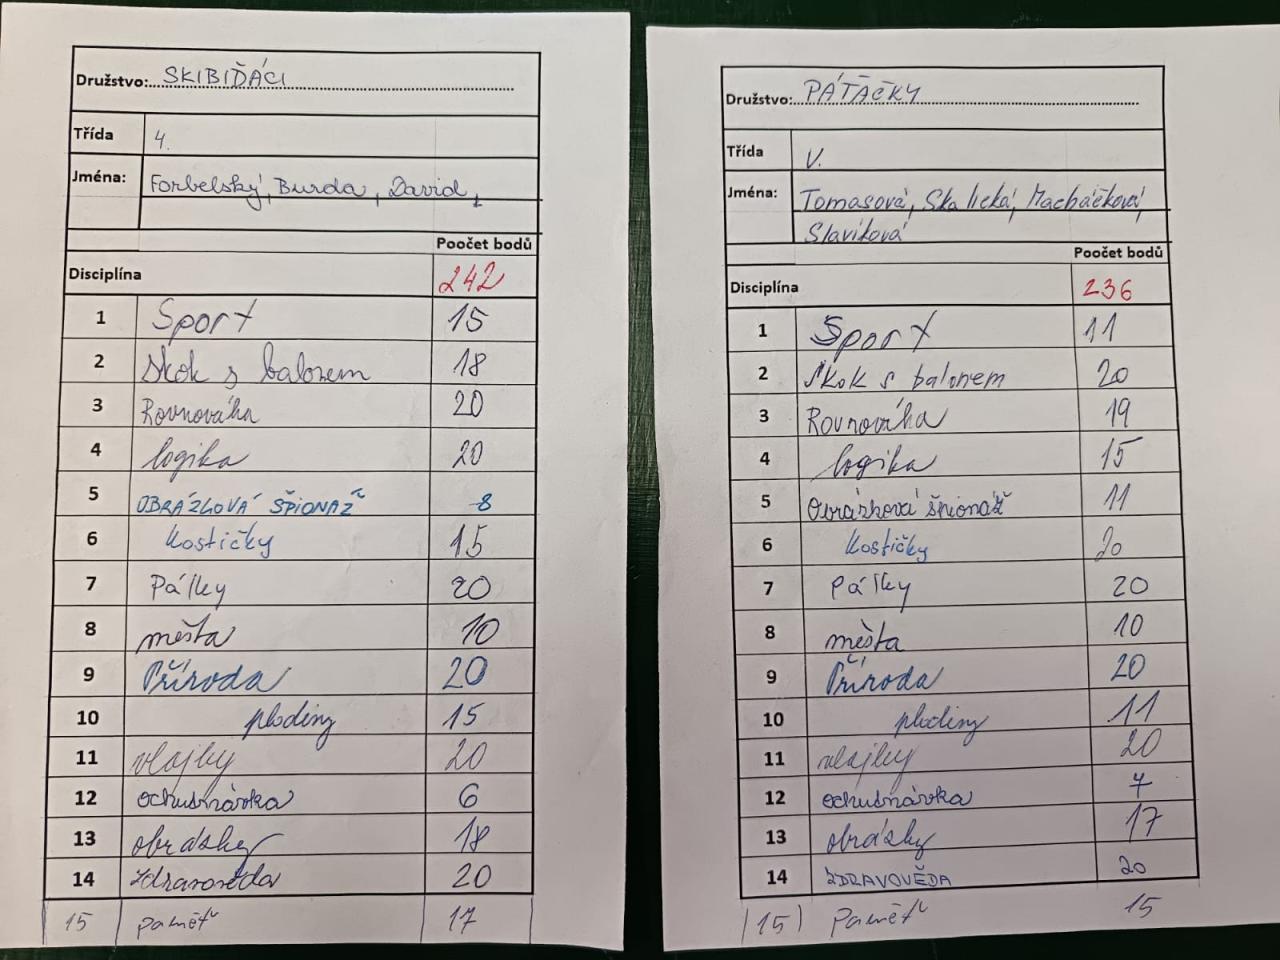 Družstvo: SKIBIĎÁCI
Třída 4.
Jména: Forbelský, Burda, David,
Poočet bodů
Disciplína 242
1 Sport 15
2 Skok s balonem 18
3 Rovnováha 20
4 logika 20
5 OBRÁZKOVÁ ŠPIONAŽ 8
6 Kostičky 15
7 Pálky 20
8 města 10
9 Příroda 20
10 plodiny 15
11 vlajky 20
12 ochutnávka 6
13 obrázky 18
14 zdravověda 20
15 Paměť 17
Družstvo: PÁŤAČKY
Třída V.
Jména: Tomasová, Skalická, Macháčková,
Slavíková
Poočet bodů
Disciplína 236
1 Sport 11
2 Skok s balonem 20
3 Rovnováha 19
4 logika 15
5 Obrázková špionáž 11
6 Kostičky 20
7 Pálky 20
8 města 10
9 Příroda 20
10 plodiny 11
11 vlajky 20
12 ochutnávka 7
13 obrázky 17
14 ZDRAVOVĚDA 20
15 Paměť 15